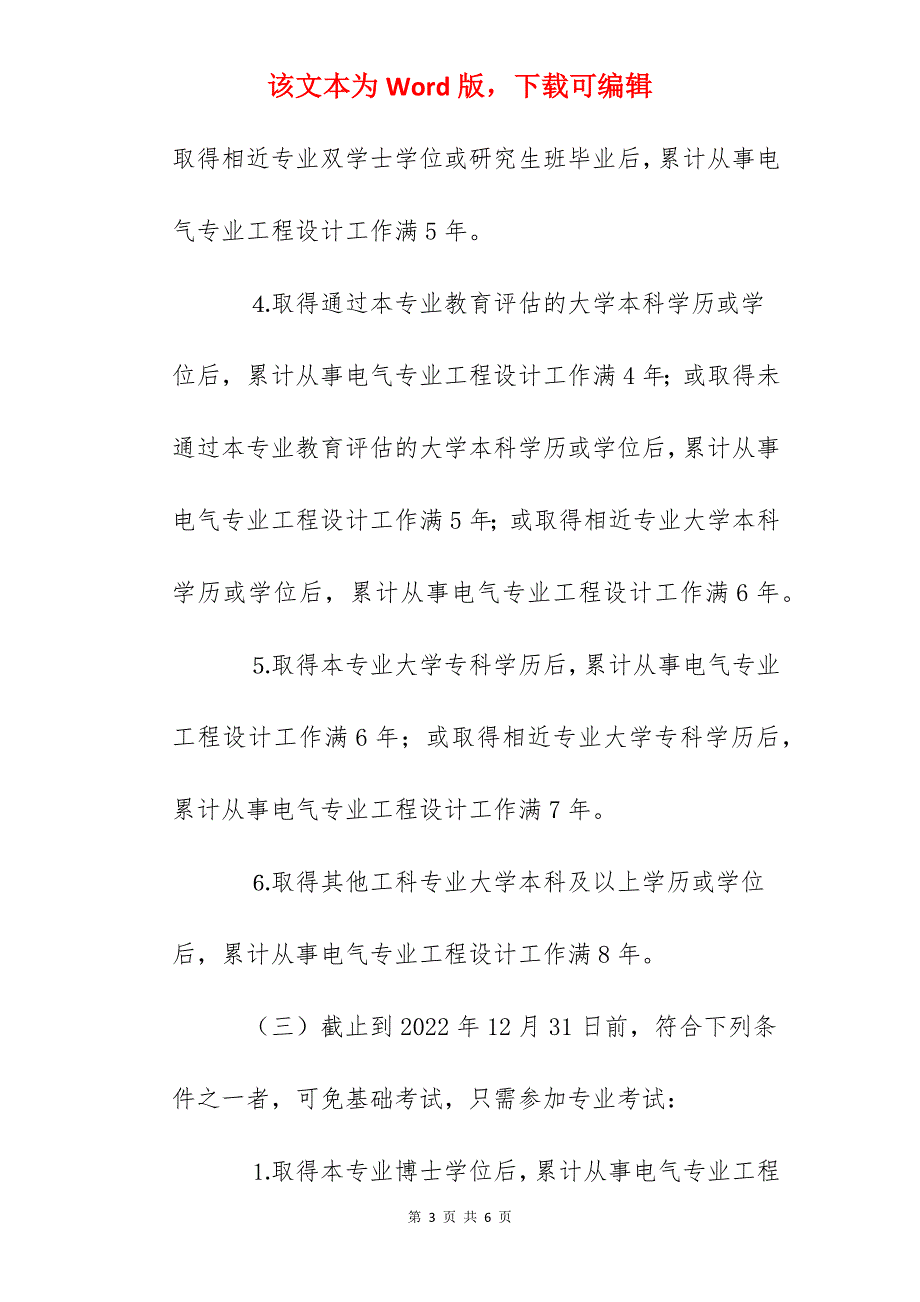 该文本为 Word 版，下载可编辑
取得相近专业双学士学位或研究生班毕业后，累计从事电
气专业工程设计工作满 5 年。
4.取得通过本专业教育评估的大学本科学历或学
位后，累计从事电气专业工程设计工作满 4 年；或取得未
通过本专业教育评估的大学本科学历或学位后，累计从事
电气专业工程设计工作满 5 年；或取得相近专业大学本科
学历或学位后，累计从事电气专业工程设计工作满 6 年。
5.取得本专业大学专科学历后，累计从事电气专业
工程设计工作满 6 年；或取得相近专业大学专科学历后，
累计从事电气专业工程设计工作满 7 年。
6.取得其他工科专业大学本科及以上学历或学位
后，累计从事电气专业工程设计工作满 8 年。
（三）截止到 2022 年 12 月 31 日前，符合下列条
件之一者，可免基础考试，只需参加专业考试：
1.取得本专业博士学位后，累计从事电气专业工程
第 3 页 共 6 页